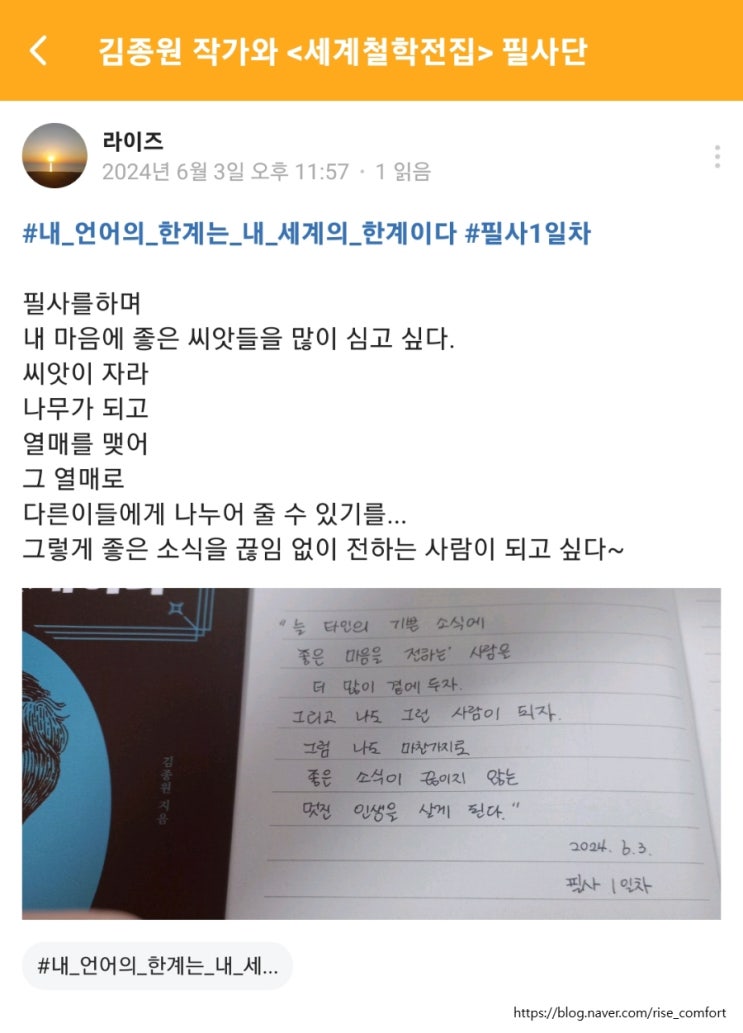 김종원 작가와 <세계철학전집> 필사단
라이즈
2024년 6월 3일 오후 11:57 · 1 읽음
#내_언어의_한계는_내_세계의_한계이다 #필사1일차
필사를하며
내 마음에 좋은 씨앗들을 많이 심고 싶다.
씨앗이 자라
나무가 되고
열매를 맺어
그 열매로
다른이들에게 나누어 줄 수 있기를...
그렇게 좋은 소식을 끊임 없이 전하는 사람이 되고 싶다~
"늘 타인의 기쁜 소식에
좋은 마음을 전하는' 사람을
더 많이 곁에 두자.
그리고 나도 그런 사람이 되자.
그럼 나도 마찬가지로
좋은 소식이 끊이지 않는
멋진 인생을 살게 된다."
2024. 6. 3.
필사 1일차
김종원 지음
#내_언어의_한계는_내_세...
https://blog.naver.com/rise_comfort